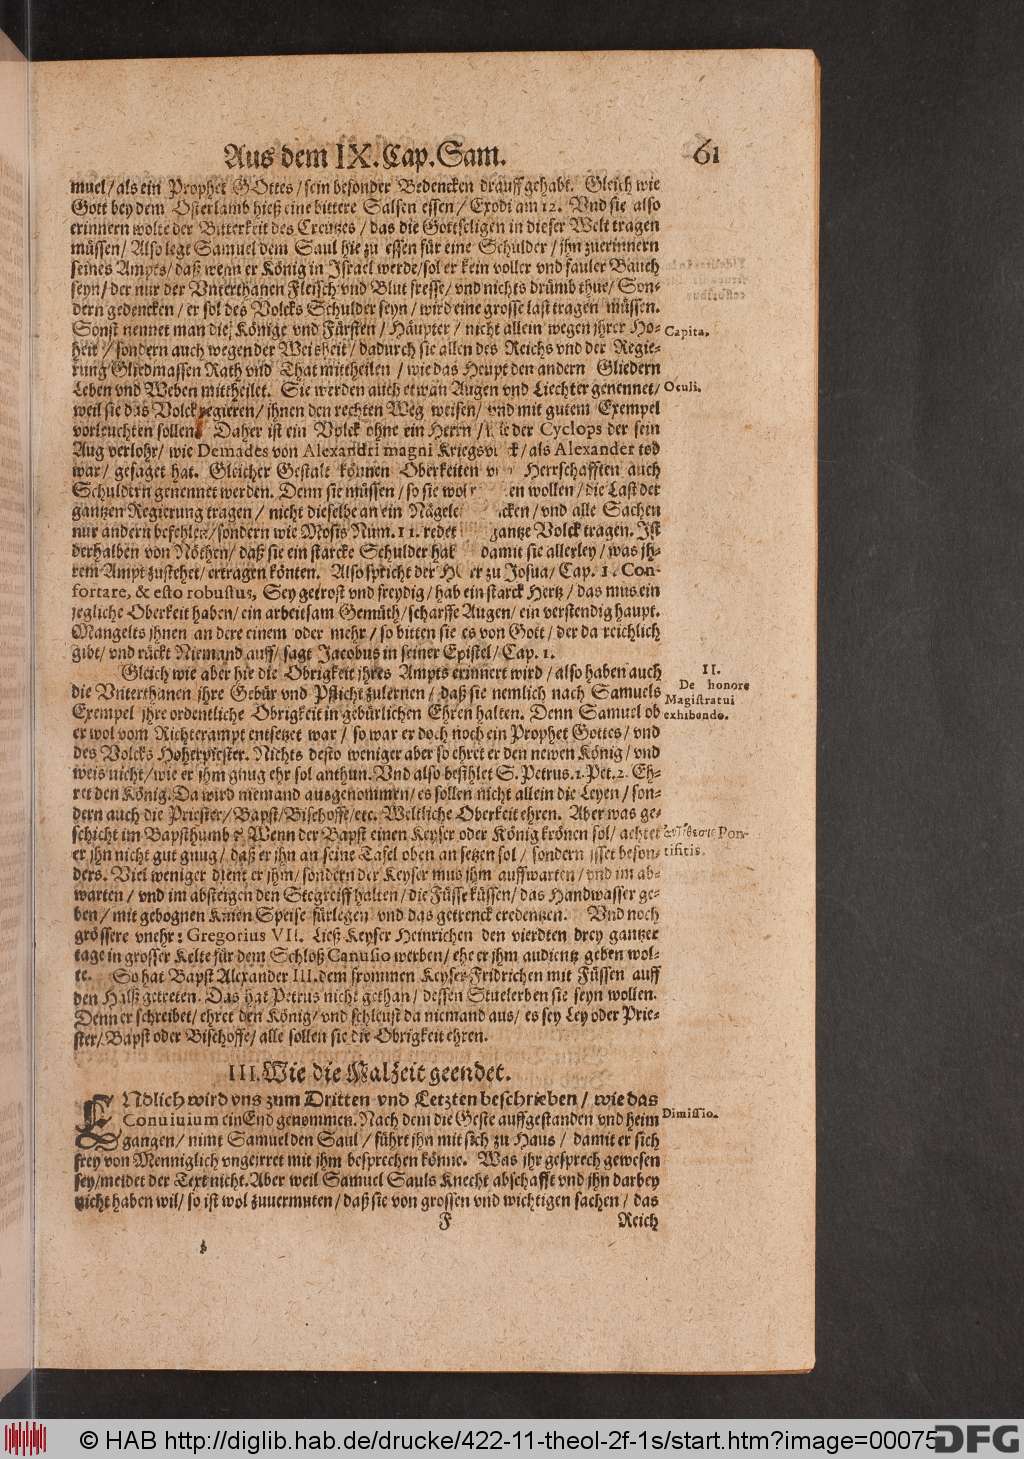 Aus dem IX. Cap. Sam. 61
muel/ als ein Prophet GOttes/ sein besonder Bedencken drauff gehabt. Gleich wie
Gott bey dem Osterlamb hieß eine bittere Salsen essen/ Exodi am 12. Vnd sie also
erinnern wolte der Bitterkeit des Creutzes/ das die Gottseligen in dieser Welt tragen
müssen/ Also legt Samuel dem Saul hie zu essen für eine Schulder/ jhn zuerinnern
seines Ampts/ daß wenn er König in Israel werde/ sol er kein voller vnd fauler Bauch
seyn/ der nur der Vnterthanen Fleisch vnd Blut fresse/ vnd nichts drümb thue/ Son-
dern gedencken/ er sol des Volcks Schulder seyn/ wird eine grosse last tragen müssen.
Sonst nennet man die Könige vnd Fürsten/ Häupter/ nicht allein wegen jhrer Ho-
heit/ sondern auch wegen der Weisheit/ dadurch sie allen des Reichs vnd der Regie-
rung Gliedmassen Rath vnd That mittheilen/ wie das Heupt den andern Gliedern
Leben vnd Weben mittheilet. Sie werden auch etwan Augen vnd Liechter genennet/
weil sie das Volck regieren/ jhnen den rechten Weg weisen/ vnd mit gutem Exempel
vorleuchten sollen. Daher ist ein Volck ohne ein Herrn/ der Cyclops der sein
Aug verlohr/ wie Demades von Alexandri magni / als Alexander tod
war/ gesaget hat. Gleicher Gestalt können Oberkeiten Herrschafften auch
Schuldern genennet werden. Denn sie müssen/ so sie en wollen/ die Last der
gantzen Regierung tragen/ nicht dieselbe an ein cken/ vnd alle Sachen
nur andern befehlen/ sondern wie Mosis Num. 11. redet gantze Volck tragen. Ist
derhalben von Nöthen/ daß sie ein starcke Schulder damit sie allerley/ was jh-
rem Ampt zustehet/ ertragen könten. Also spricht der zu Josua/ Cap. 1. Con-
fortare, & esto robustus, Sey getrost vnd freydig/ hab ein starck Hertz/ das mus ein
jegliche Oberkeit haben/ ein arbeitsam Gemüth/ scharffe Augen/ ein verstendig haupt.
Mangelts jhnen an dere einem oder mehr/ so bitten sie es von Gott/ der da reichlich
gibt/ vnd rückt Niemand auff/ sagt Jacobus in seiner Epistel/ Cap. 1.
Gleich wie aber hie die Obrigkeit jhres Ampts erinnert wird/ also haben auch
die Vnterthanen jhre Gebür vnd Pflicht zulernen/ daß sie nemlich nach Samuels
Exempel jhre ordentliche Obrigkeit in gebürlichen Ehren halten. Denn Samuel ob
er wol vom Richterampt entsetzet war/ so war er doch noch ein Prophet Gottes/ vnd
des Volcks Hoherpriester. Nichts desto weniger aber so ehret er den newen König/ vnd
weis nicht/ wie er jhm gnug ehr sol anthun. Vnd also befihlet S. Petrus. 1. Pet. 2. Eh-
ret den König. Da wird niemand ausgenommen/ es sollen nicht allein die Leyen/ son-
dern auch die Priester/ Bapst/ Bischoffe/ etc. Weltliche Oberkeit ehren. Aber was ge-
schicht im Bapsthumb? Wenn der Bapst einen Keyser oder König krönen sol/ achtet
er jhn nicht gut gnug/ daß er jhn an seine Tafel oben an setzen sol/ sondern isset beson-
ders. Viel weniger dient er jhm/ sondern der Keyser mus jhm auffwarten/ vnd im ab-
warten/ vnd im absteigen den Stegreiff halten/ die Füsse küssen/ das Handwasser ge-
ben/ mit gebognen Knien Speise fürlegen vnd das getrenck credentzen. Vnd noch
grössere vnehr: Gregorius VII. Ließ Keyser Heinrichen den vierdten drey gantzer
tage in grosser Kelte für dem Schloß Canusio werben/ ehe er jhm audientz geben wol-
te. So hat Bapst Alexander III. dem frommen Keyser Fridrichen mit Füssen auff
den Halß getreten. Das hat Petrus nicht gethan/ dessen Stuelerben sie seyn wollen.
Denn er schreibet/ ehret den König/ vnd schleust da niemand aus/ es sey Ley oder Prie-
ster/ Bapst oder Bischoffe/ alle sollen sie die Obrigkeit ehren.
III. Wie die Malzeit geendet.
ENdlich wird vns zum Dritten vnd Letzten beschrieben/ wie das
Conuiuium ein End genommen. Nach dem die Geste auffgestanden vnd heim
gangen/ nimt Samuel den Saul/ führt jhn mit sich zu Haus/ damit er sich
frey von Menniglich vngejrret mit jhm besprechen könne. Was jhr gesprech gewesen
sey/ meldet der Text nicht. Aber weil Samuel Sauls Knecht abschafft vnd jhn darbey
nicht haben wil/ so ist wol zuvermuten/ daß sie von grossen vnd wichtigen sachen/ das
F Reich
Capita.
Oculi.
II.
De honore
Magistratui
exhibendo.
ἀντίθεσις Pon-
tificis.
Dimissio.
© HAB http://diglib.hab.de/drucke/422-11-theol-2f-1s/start.htm?image=00075
DFG